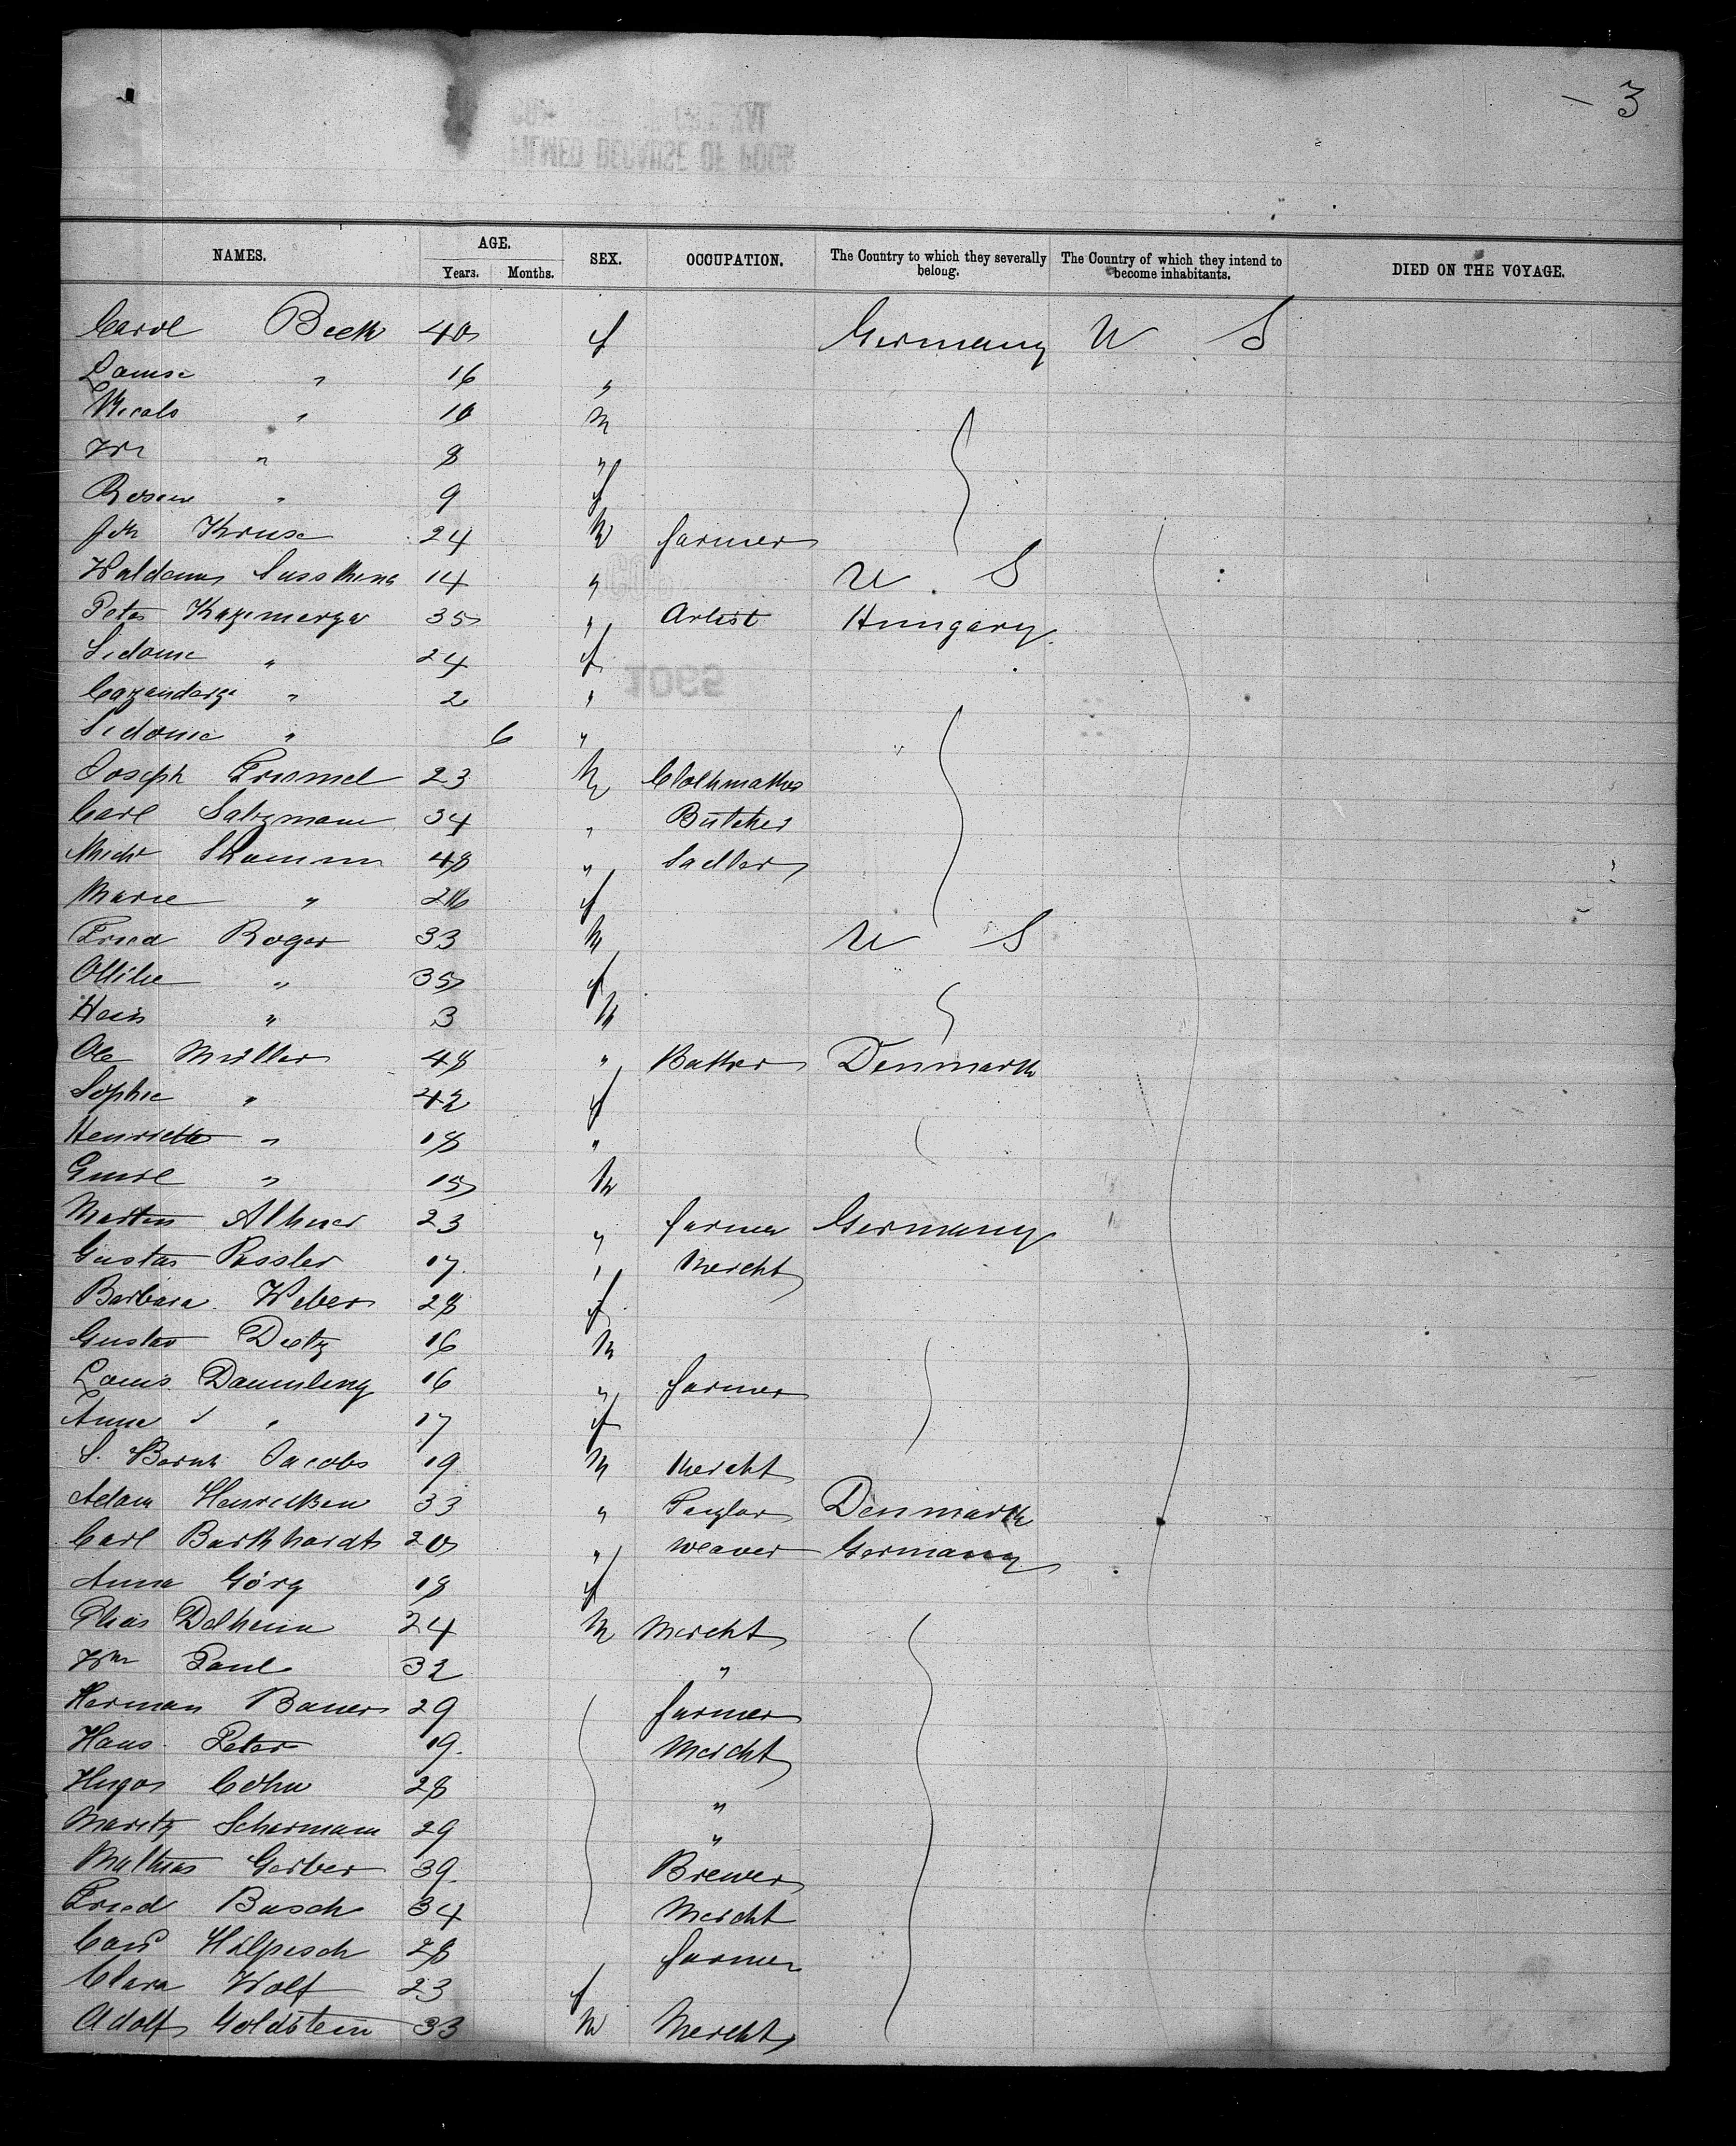 3
NAMES. AGE. Years. Months. SEX. OCCUPATION. The Country to which they severally belong. The Country of which they intend to become inhabitants. DIED ON THE VOYAGE.
Carol Beck 40 f Germany U S
Louise " 16 "
10 m
Wm " 8 "
Rosa " 9 f
Joh Kruse 24 m farmer
14 " U. S
Peter 35 " Artist Hungary
Sidonie " 24 f
" 2 "
Sidonie " 6 "
Joseph 23 m Clothmaker
Carl Salzmann 34 " Butcher
48 " Sadler
Marie " f
Fried Roger 33 m U S
Ottilie " 35 f
Hein " 3 m
Ole Müller 48 " Baker Denmark
Sophie " 42 f
Henriette " 18 "
Emil " 15 m
Martin 23 " farmer Germany
Gustav 17 " Mercht
Barbara Weber 28 f
Gustav Dietz 16 m
Louis Daumling 16 " farmer
Anna " 17 f
S. Bernh Jacobs 19 m Mercht
Adam Henriksen 33 " Taylor Denmark
Carl Burkhardt 20 " weaver Germany
Anna Görg 18 f
Delheim 24 m Mercht
Wm Paul 32 "
Herman Bauer 29 farmer
Hans Peter 19 Mercht
Hugo Cohn 28 "
Moritz Schermann 29 "
Mathias Gerber 39 Brewer
Fried Busch 34 Mercht
Hilpisch 28 farmer
Clara Wolf 23 f
Adolf Goldstein 33 m Mercht